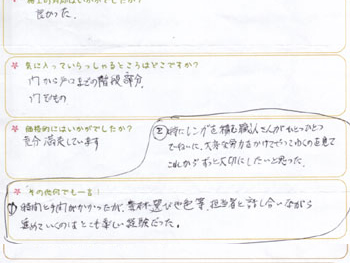 良かった。
★ 気に入っていらっしゃるところはどこですか?
門から戸口までの階段部分。
門そのもの
★ 価格的にはいかがでしたか?
充分満足しています
② 特にレンガを積む職人さんがひとつひとつ
ていねいに、大変な労力をかけて
これからずっと大切にしたいと思った。
★ その他何でも一言!
① 時間と手間がかかったが、素材選びや色等、担当者と話し合いながら
進めていくのはとても楽しい経験だった。